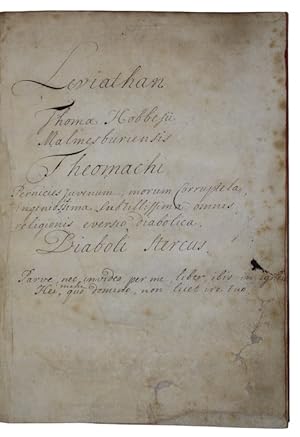 Leviathan
Thomæ Hobbesii
Malmesburiensis
Theomachi
Pernicies juvenum, morum corruptela,
ingeniosissima, subtilissima omnis
religionis eversio diabolica.
Diaboli Stercus.
Parve, nec invideo per me, liber, ibis in ignes
Hei mihi, quo domino, non licet ire tuo.